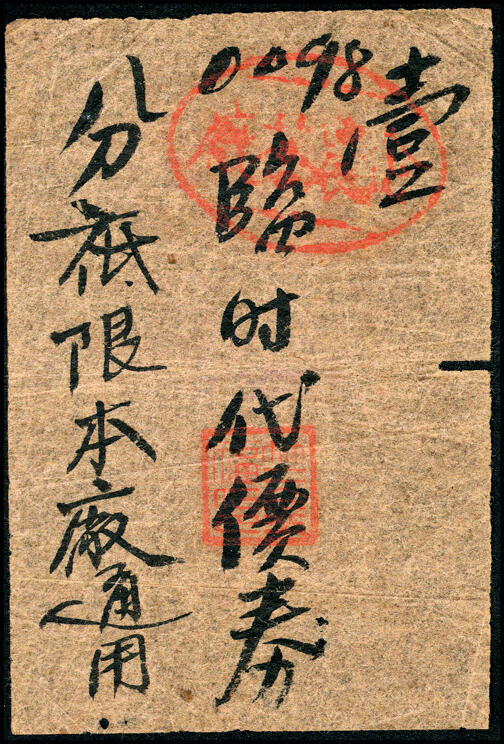 0098
壹
臨时代價券
分祗限本廠通用.